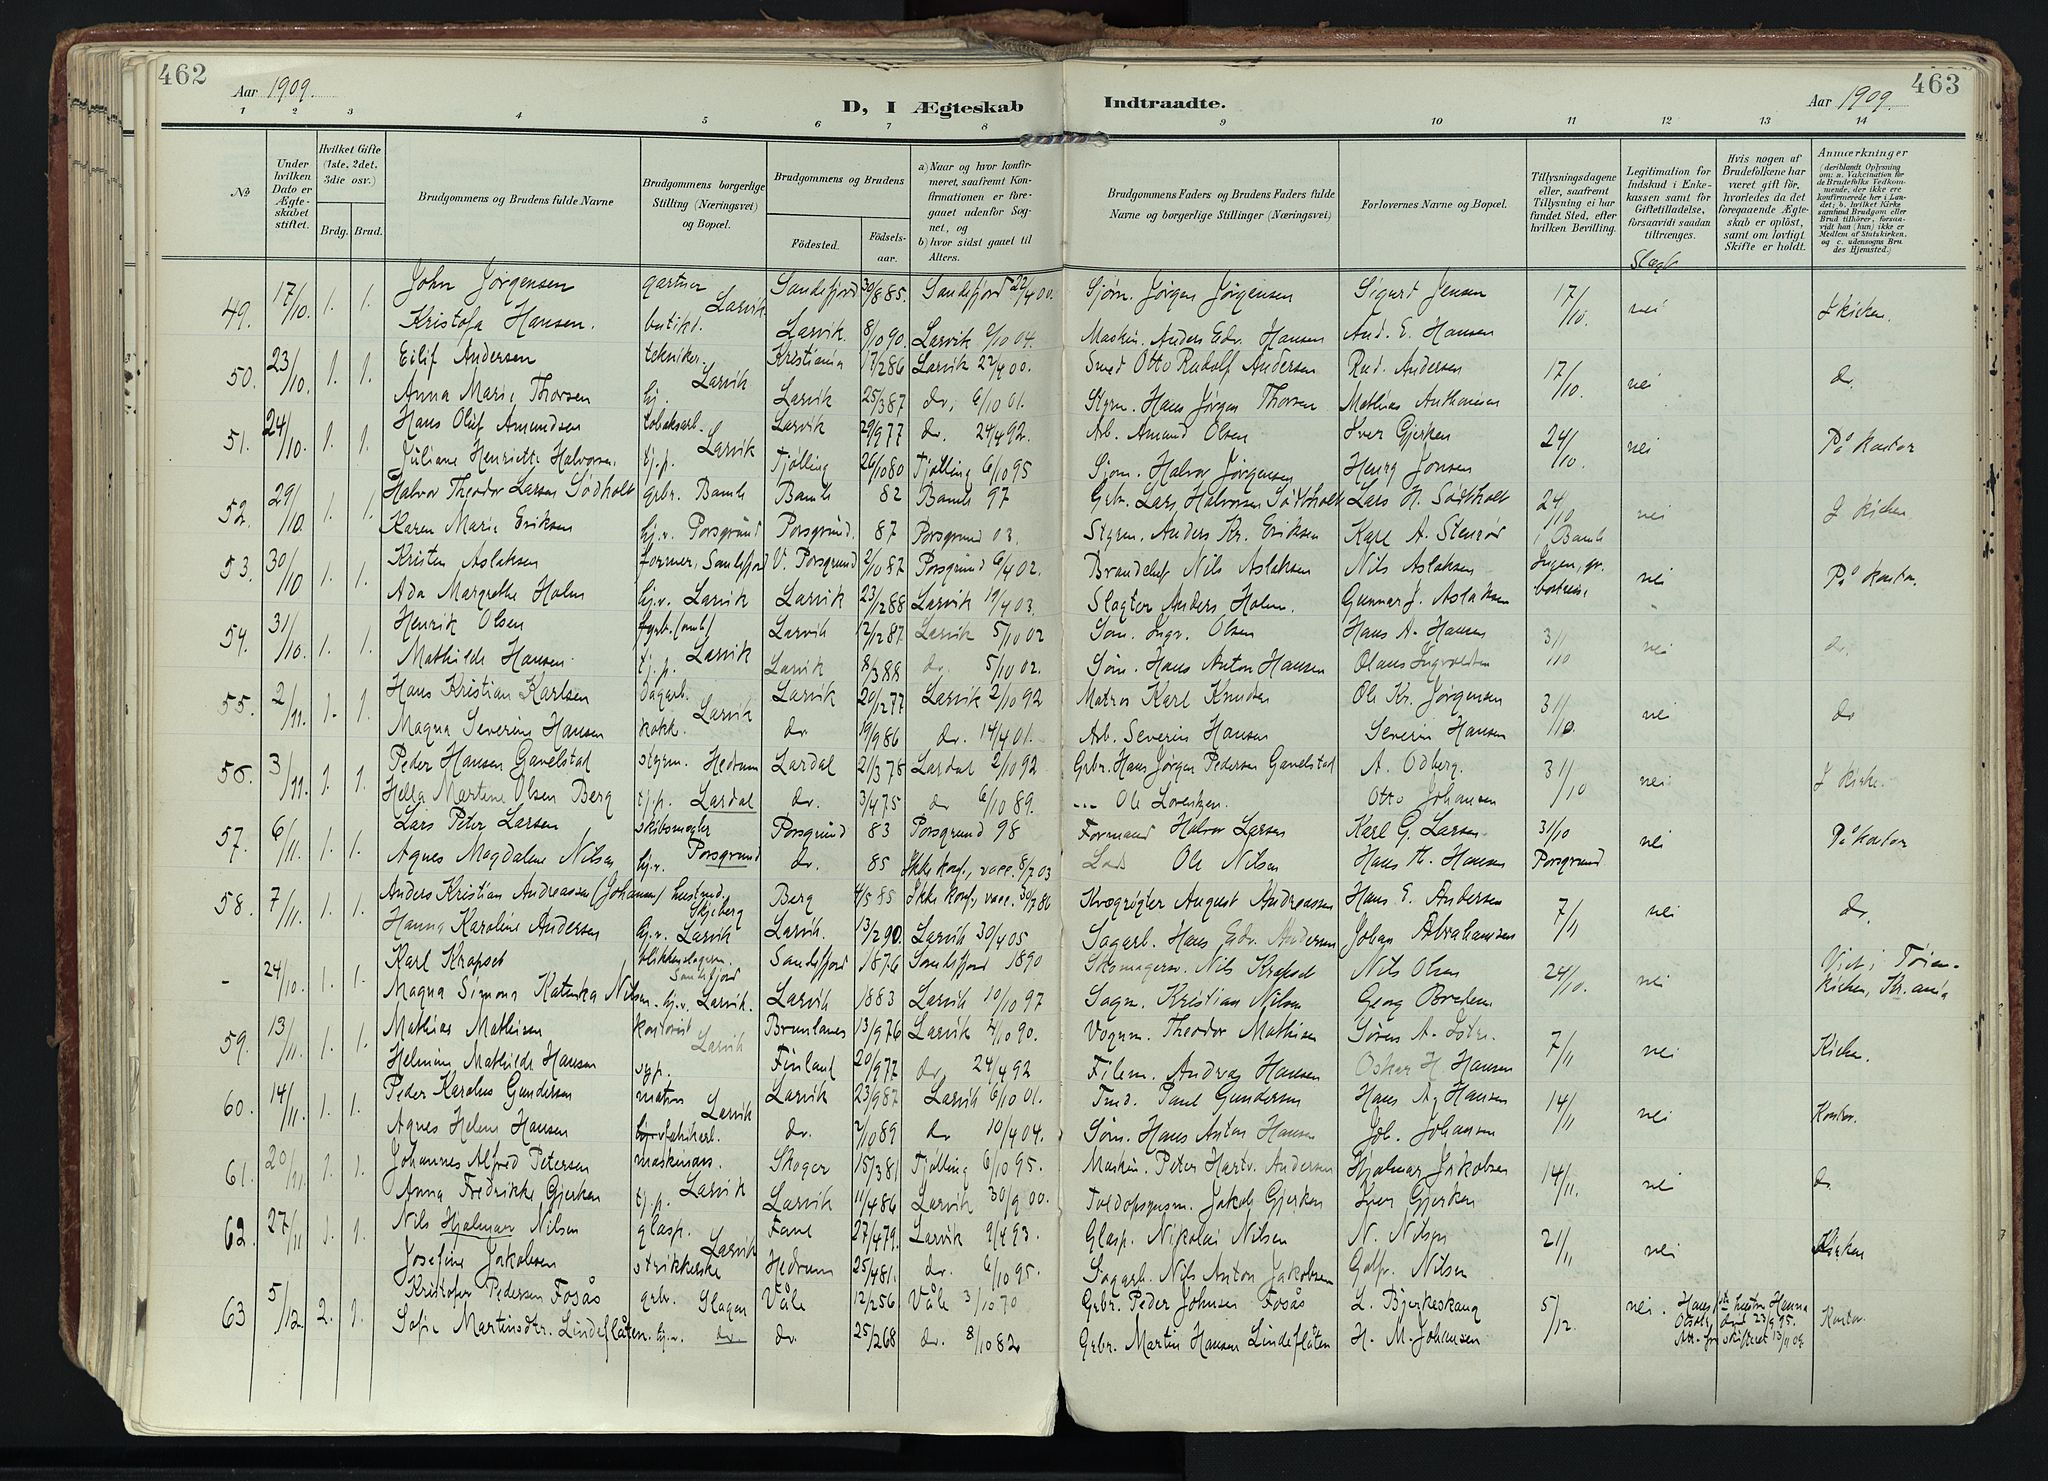 462
463
Aar 1909.
D, I Ægteskab Indtraadte.
Aar 1909.
1 2 3 4 5 6 7 8 9 10 11 12 13 14
No
Under hvilken Dato er Ægteskabet stiftet.
Hvilket Gifte (1ste, 2det, 3die osv.)
Brdg. Brud.
Brudgommens og Brudens fulde Navne
Brudgommens borgerlige Stilling (Næringsvei) og Bopæl.
Brudgommens og Brudens
Fødested.
Fødsels-aar.
a) Naar og hvor konfirmeret, saafremt Konfirmationen er foregaaet udenfor Sognet, og
b) hvor sidst gaaet til Alters.
Brudgommens Faders og Brudens Faders fulde Navne og borgerlige Stillinger (Næringsvei)
Forlovernes Navne og Bopæl.
Tillysningsdagene eller, saafremt Tillysning ei har fundet Sted, efter hvilken Bevilling.
Legitimation for Indskud i Enkekassen samt for Giftetilladelse, forsaavidt saadan tiltrænges.
Hvis nogen af Brudefolkene har været gift før, hvorledes da det foregaaende Ægteskab er opløst, samt om lovligt Skifte er holdt.
Anmærkninger
(deriblandt Oplysning om: a. Vaccination for de Brudefolks Vedkommende, der ikke ere konfirmerede her i Landet; b. hvilket Kirkesamfund Brudgom eller Brud tilhører, forsaavidt han (hun) ikke er Medlem af Statskirken. og c. udensogns Brudes Hjemsted.)
Slægt
49. 17/10. 1. 1. John Jørgensen gartner Larvik Sandefjord 30/8 85. Sandefjord 22/4 00. Sjøm. Jørgen Jørgensen Sigurd Jensen 17/10. nei I kirken.
Kristofa Hansen. butikd. Larvik. 8/10 90. Larvik 2/10 04. Maskin. Anders Edv. Hansen And. E. Hansen
50. 23/10. 1. 1. Eilif Andersen tekniker. Larvik Kristiania 17/2 86 Larvik 22/4 00. Smed Otto Rudolf Andersen Rud. Andersen 17/10. nei do.
Anna Marie Thorsen hj. Larvik 25/3 87 do. 6/10 01. Styrm. Hans Jørgen Thorsen Mathias Anthonisen
51. 24/10. 1. 1. Hans Oluf Amundsen tobaksarb. Larvik Larvik 29/9 77 do. 24/4 92. Arb. Amund Olsen Iver Gjerken 24/10. nei På kontor
Juliane Henriette Halvorsen. tj.p. Tjølling 26/10 80 Tjølling 6/10 95 Sjøm. Halvor Jørgensen Henry Jonsen
52. 29/10. 1. 1. Halvor Theodor Larsen Sødholt grbr. Bamle Bamle 82 Bamle 97 Grbr. Lars Halvorsen Sødtholt Lars H. Sødtholt 24/10 nei I kirken
Karen Marie Eriksen hj.v. Porsgrund Porsgrund. 87 Porsgrund 03. Styrm. Anders Kr. Eriksen Karl A. Stenrød i Bamle
53. 30/10 1. 1. Kristen Aslaksen former, Sandefjord V. Porsgrund 2/10 87 Porsgrund 6/4 02. Brandchef Nils Aslaksen Nils Aslaksen Ingen, gr. nei På kontor.
Ada Margrethe Holm hj.v. Larvik Larvik 23/12 88 Larvik 19/4 03. Slagter Anders Holm. Gunnar J. Aslaksen bortreise
54. 31/10. 1. 1. Henrik Olsen Larvik Larvik 12/12 87 Larvik 5/10 02 Søm. Ingv. Olsen Hans A. Hansen 31/10 nei do.
Mathilde Hansen. tj.p. Larvik 8/3 88 do. 5/10 02. Søm. Hans Anton Hansen Olaus Ingvoldsen
55. 2/11. 1. 1. Hans Kristian Karlsen dagarb. Larvik Larvik 20/12 77 Larvik 2/10 92 Matros Karl Knudsen Ole Kr. Jørgensen 31/10. nei do
Magna Severine Hansen kokk. do 19/9 86 do. 14/4 01. Arb. Severin Hansen Severin Hansen
56. 3/11. 1. 1. Peder Hansen Gavelstad styrm. Hedrum Lardal 21/3 78 Lardal 2/10 92 Grbr. Hans Jørgen Pedersen Gavelstad A. Odberg. 31/10 nei I kirke.
Hella Martene Olsen Berg tj.p. Lardal do. 3/4 75 do 6/10 89. --- Ole Lorentzen. Otto Johansen
57. 6/11. 1. 1. Lars Peter Larsen skibsmægler Porsgrund Porsgrund 83 Porsgrund 98 Formand Halvor Larsen Karl G. Larsen 31/10 nei På kontor
Agnes Magdalene Nilsen hj.v. do. 85 Ikke konf., vacc. 8/7 03 Lods Ole Nilsen Hans H. Hansen Porsgrund
58. 7/11. 1. 1. Anders Kristian Andreassen (Johansen) Skjeberg Berg 4/5 85 Ikke konf., vacc. 30/7 86 Kvægrøgter August Andreassen Hans E. Andersen 7/11 nei do.
Hanna Karoline Andersen hj.v. Larvik Larvik. 13/2 90. Larvik 30/4 05 Sagarb. Hans Edv. Andersen Johan Abrahamsen
- 24/10. 1. 1. Karl Krapset blikkenslagerm. Sandefjord Sandefjord 1876 Sandefjord 1890 Skomagersv. Nils Krapset Nils Olsen 24/10. nei Viet i Tøien-
Magna Simona Katinka Nilsen hj.v. Larvik. Larvik 1883 Larvik 10/10 97 Sagm. Kristian Nilsen Georg Bredem. kirken, Kr.ania
59. 13/11. 1. 1. Mathias Mathisen kontorist Larvik Brunlanes 13/9 76 Larvik 4/10 90. Vognm. Theodor Mathisen Søren A. Istre. 7/11 nei Kirken.
Helmine Mathilde Hansen syp. Finland 20/9 77 do. 24/4 92 Filem. Andreas Hansen Oskar H. Hansen
60. 14/11. 1. 1. Peder Karolus Gundersen matros Larvik Larvik 23/9 87 Larvik 6/10 01. Tmd. Paul Gundersen Hans Ag Hansen 14/11 nei Kontor.
Agnes Helene Hansen fabrikarb. do. 2/10 89 do 10/4 04. Søm. Hans Anton Hansen Joh. Johansen
61. 20/11. 1. 1. Johannes Alfred Petersen maskinass. Larvik Skoger 15/3 81 Tjølling 6/10 95. Maskin. Peter Hartv. Andersen Hjalmar Jakobsen 14/11. nei do.
Anna Fredrikke Gjerken tj.p. Larvik 11/4 86 Larvik 30/9 00. Toldopsynsm. Jakob Gjerken Iver Gjerken
62. 27/11 1. 1. Nils Hjalmar Nilsen glasp. Larvik Fane 27/4 79. Larvik 9/4 93. Glasp. Nikolai Nilsen N. Nilsen 21/11 nei Kirken
Josefine Jakobsen strikkerske Hedrum 25/4 81. do. 6/10 95. Sagarb. Nils Anton Jakobsen Nilsen
63 5/12. 2. 1. Kristofer Pedersen Fosås grbr. Slagen Våle 12/2 56 Våle 3/10 70 Grbr. Peder Johnsen Fosås L. Bjerkeskaug 5/12. nei. Hans 1ste hustru Hanna Kontor
Sofie Martinsdtr. Lindeflåten. hj.v. do do. 25/2 68 do. 8/10 82 Grbr. Martin Hansen Lindeflåten H. M. Johansen død 23/9 95. skiftet 13/11 09